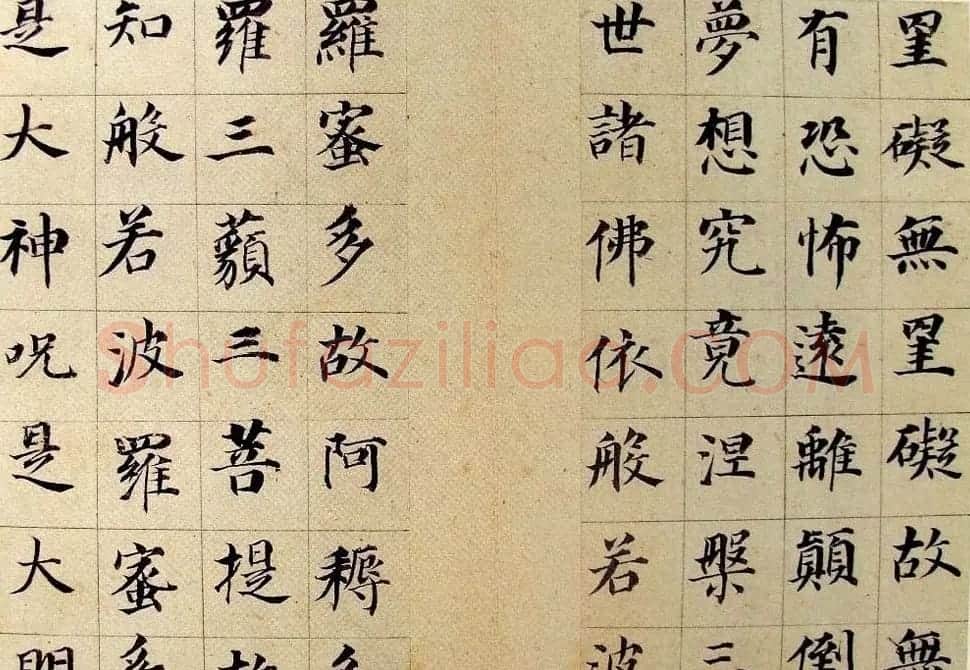 罣礙無罣礙故無
有恐怖遠離顛倒
夢想究竟涅槃三
世諸佛依般若波
羅蜜多故阿耨多
羅三藐三菩提故
知般若波羅蜜多
是大神呪是大明
Shufaziliao.COM